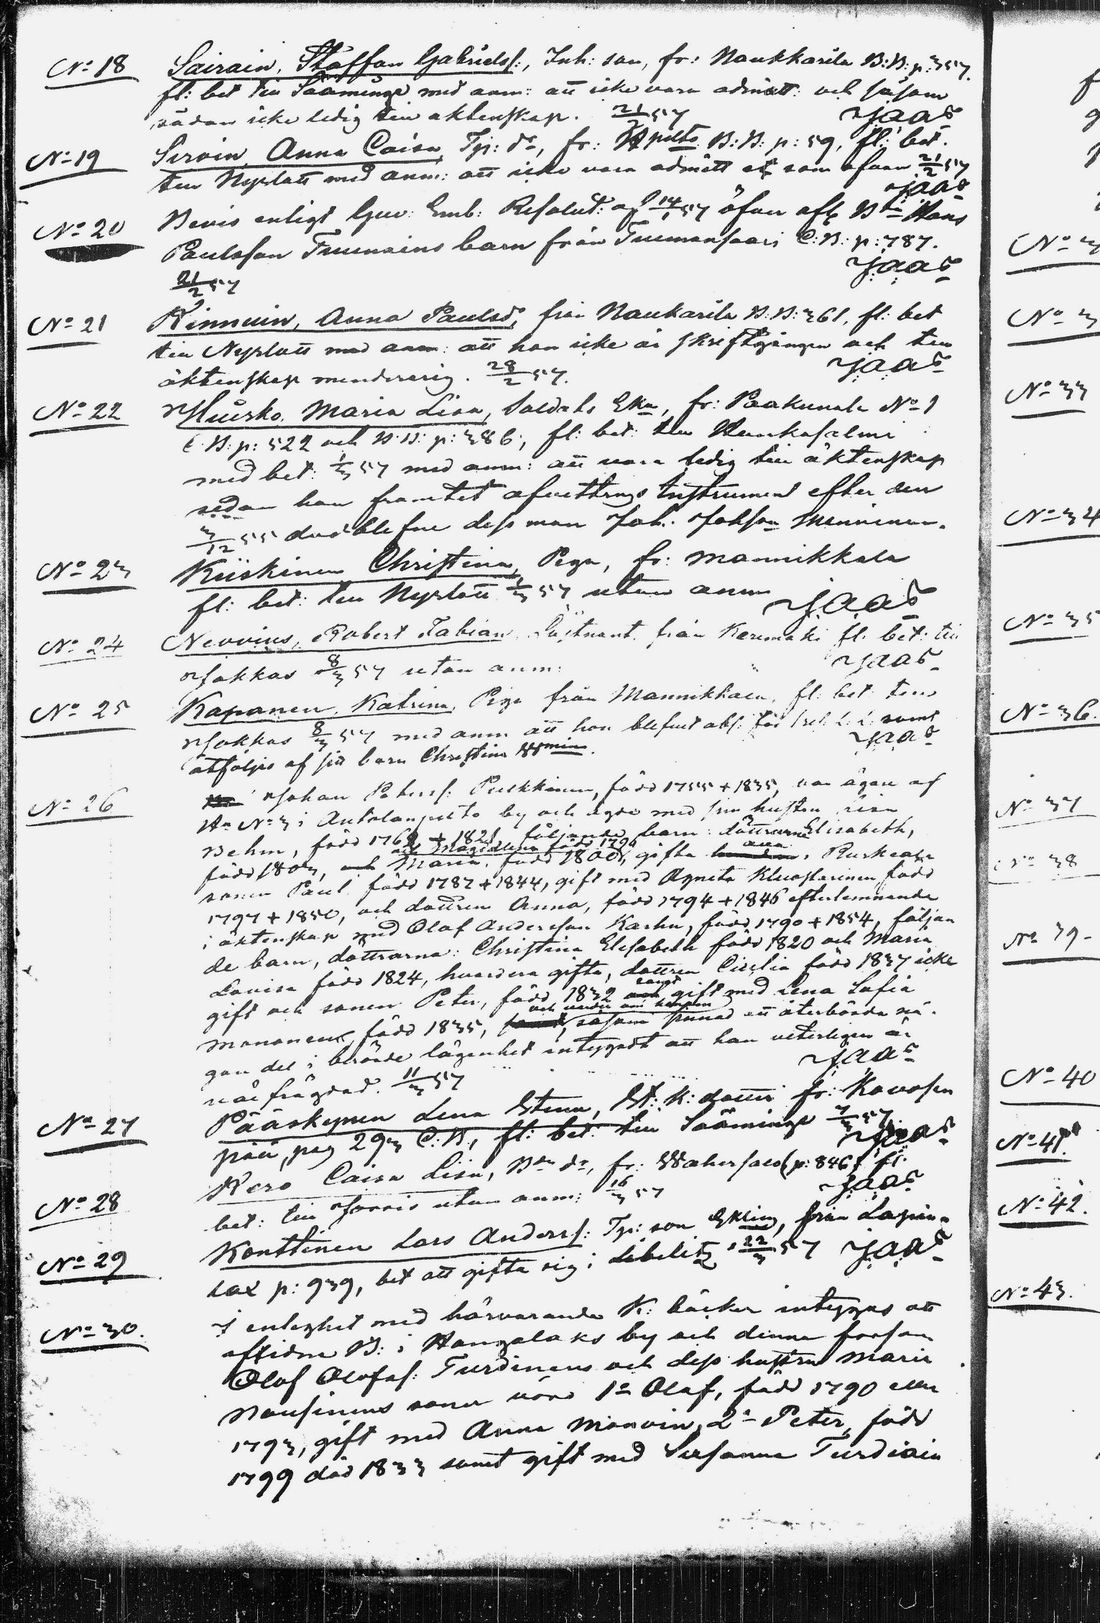 No 18 Sairain, Staffan Gabrielss:, Inh: son, fr: Naukkarila B:B: p: 357.
fl: bet till Sääminge med anm: att icke vara admitt: och såsom
sådan icke ledig till äktenskap. 21/2 57 Jaas
No 19 Sirvin, Anna Caisa, Tp: dr, fr: B:B: p: 59, fl: bet.
till Nyslott med anm: att icke vara admitt et som ofvan 21/2 57
Jaas
No 20 Bevis enligt Guv: Emb: Resolut: af 14/1 57 öfver afl: Bdn Hans
Paulsson Tuunains barn från Tuunansaari C:B: p: 787.
21/2 57 Jaas
No 21 Kinnuin, Anna Paulsd:, från Naukarila B:B: 361, fl: bet
till Nyslott med anm: att hon icke är skriftgången och till
äktenskap minderårig. 28/2 57. Jaas
No 22 Maria Lisa, Soldats Eka, fr: Paakunala No 1
C:B: p: 522 och B:B: p: 386, fl: bet: till Haukasalmi
med bet: 1/3 57 med anm: att vara ledig till äktenskap
sedan hon framtet afvittrings Instrument efter den
3/12 55 dödblefne dess man Joh: Johsson Minninen.
No 23 Kiiskinen Christina, Piga, fr: Mannikkala
fl: bet: till Nyslott 1/3 57 utan anm Jaas
No 24 Neovius, Robert Fabian, Löjtnant från Kerimäki fl: bet: till
Jokkas 8/3 57 utan anm: Jaas
No 25 Kapanen, Katrina, Piga från Mannikkala, fl: bet: till
Jokkas 8/3 57 med anm att hon blifvit abs: för samt
åtföljes af sitt barn Christina Jaas
No 26 Johan Peterss: Purkkinen, född 1755 + 1835, var ägare af
Hn No 3 i Antolanjuito by och ägde med sin hustru Lisa
Behm, född 1769 + 1821, följande barn: döttrarna Elisabeth,
och Magdalena född 1796
född 1803, Maria, född 1800, gifta,
sonen Paul född 1787 + 1844, gift med Agneta född
1797 + 1850, och dottren Anna, född 1794 + 1846 efterlemnande
i äktenskap med Olof Andersson Karhu, född 1790 + 1854, följan
de barn, döttrarna: Christina Elisabeth född 1820 och Maria
Lovisa född 1824, hvardera gifta, dottren Cicilia född 1837 icke
gift och sonen Peter, född 1832 samt gift med Lena Sofia
Mononen, född 1835, såsom sinnad att återbörda nå-
gon del i berörde lägenhet intygadt att han veterligen är
oåtfrågdad. 11/3 57 Jaas
No 27 Pääskynen Lena Stina, St: K: dotter fr: Kavosen
pää, pag 293 C:B:, fl: bet: till Sääminge 7/3 57.
Jaas
No 28 Kero Caisa Lisa, Bde dr, fr: p: 846, fl:
bet: till Jorois utan anm: 16/3 57 Jaas
No 29 Konttinen Lars Anderss: Tp: son från Lapin-
lax p: 939, bet att gifta sig i Libelitz 22/3 57 Jaas
No 30. I enlighet med härvarande K: böcker intygas att
aflidne B: i Hangalaks by och dinna forsan
Olof Olofss: Turdinens och dess hustru Maria
Nousinens söner voro 1o Olof, född 1790 eller
1793, gift med Anna Monoin, 2o Peter, född
1799 död 1833 samt gift med Susanna Turdiain
No 33
No 34
No 35
No 36.
No 37
No 38
No 39-
No 40
No 41
No 42.
No 43.